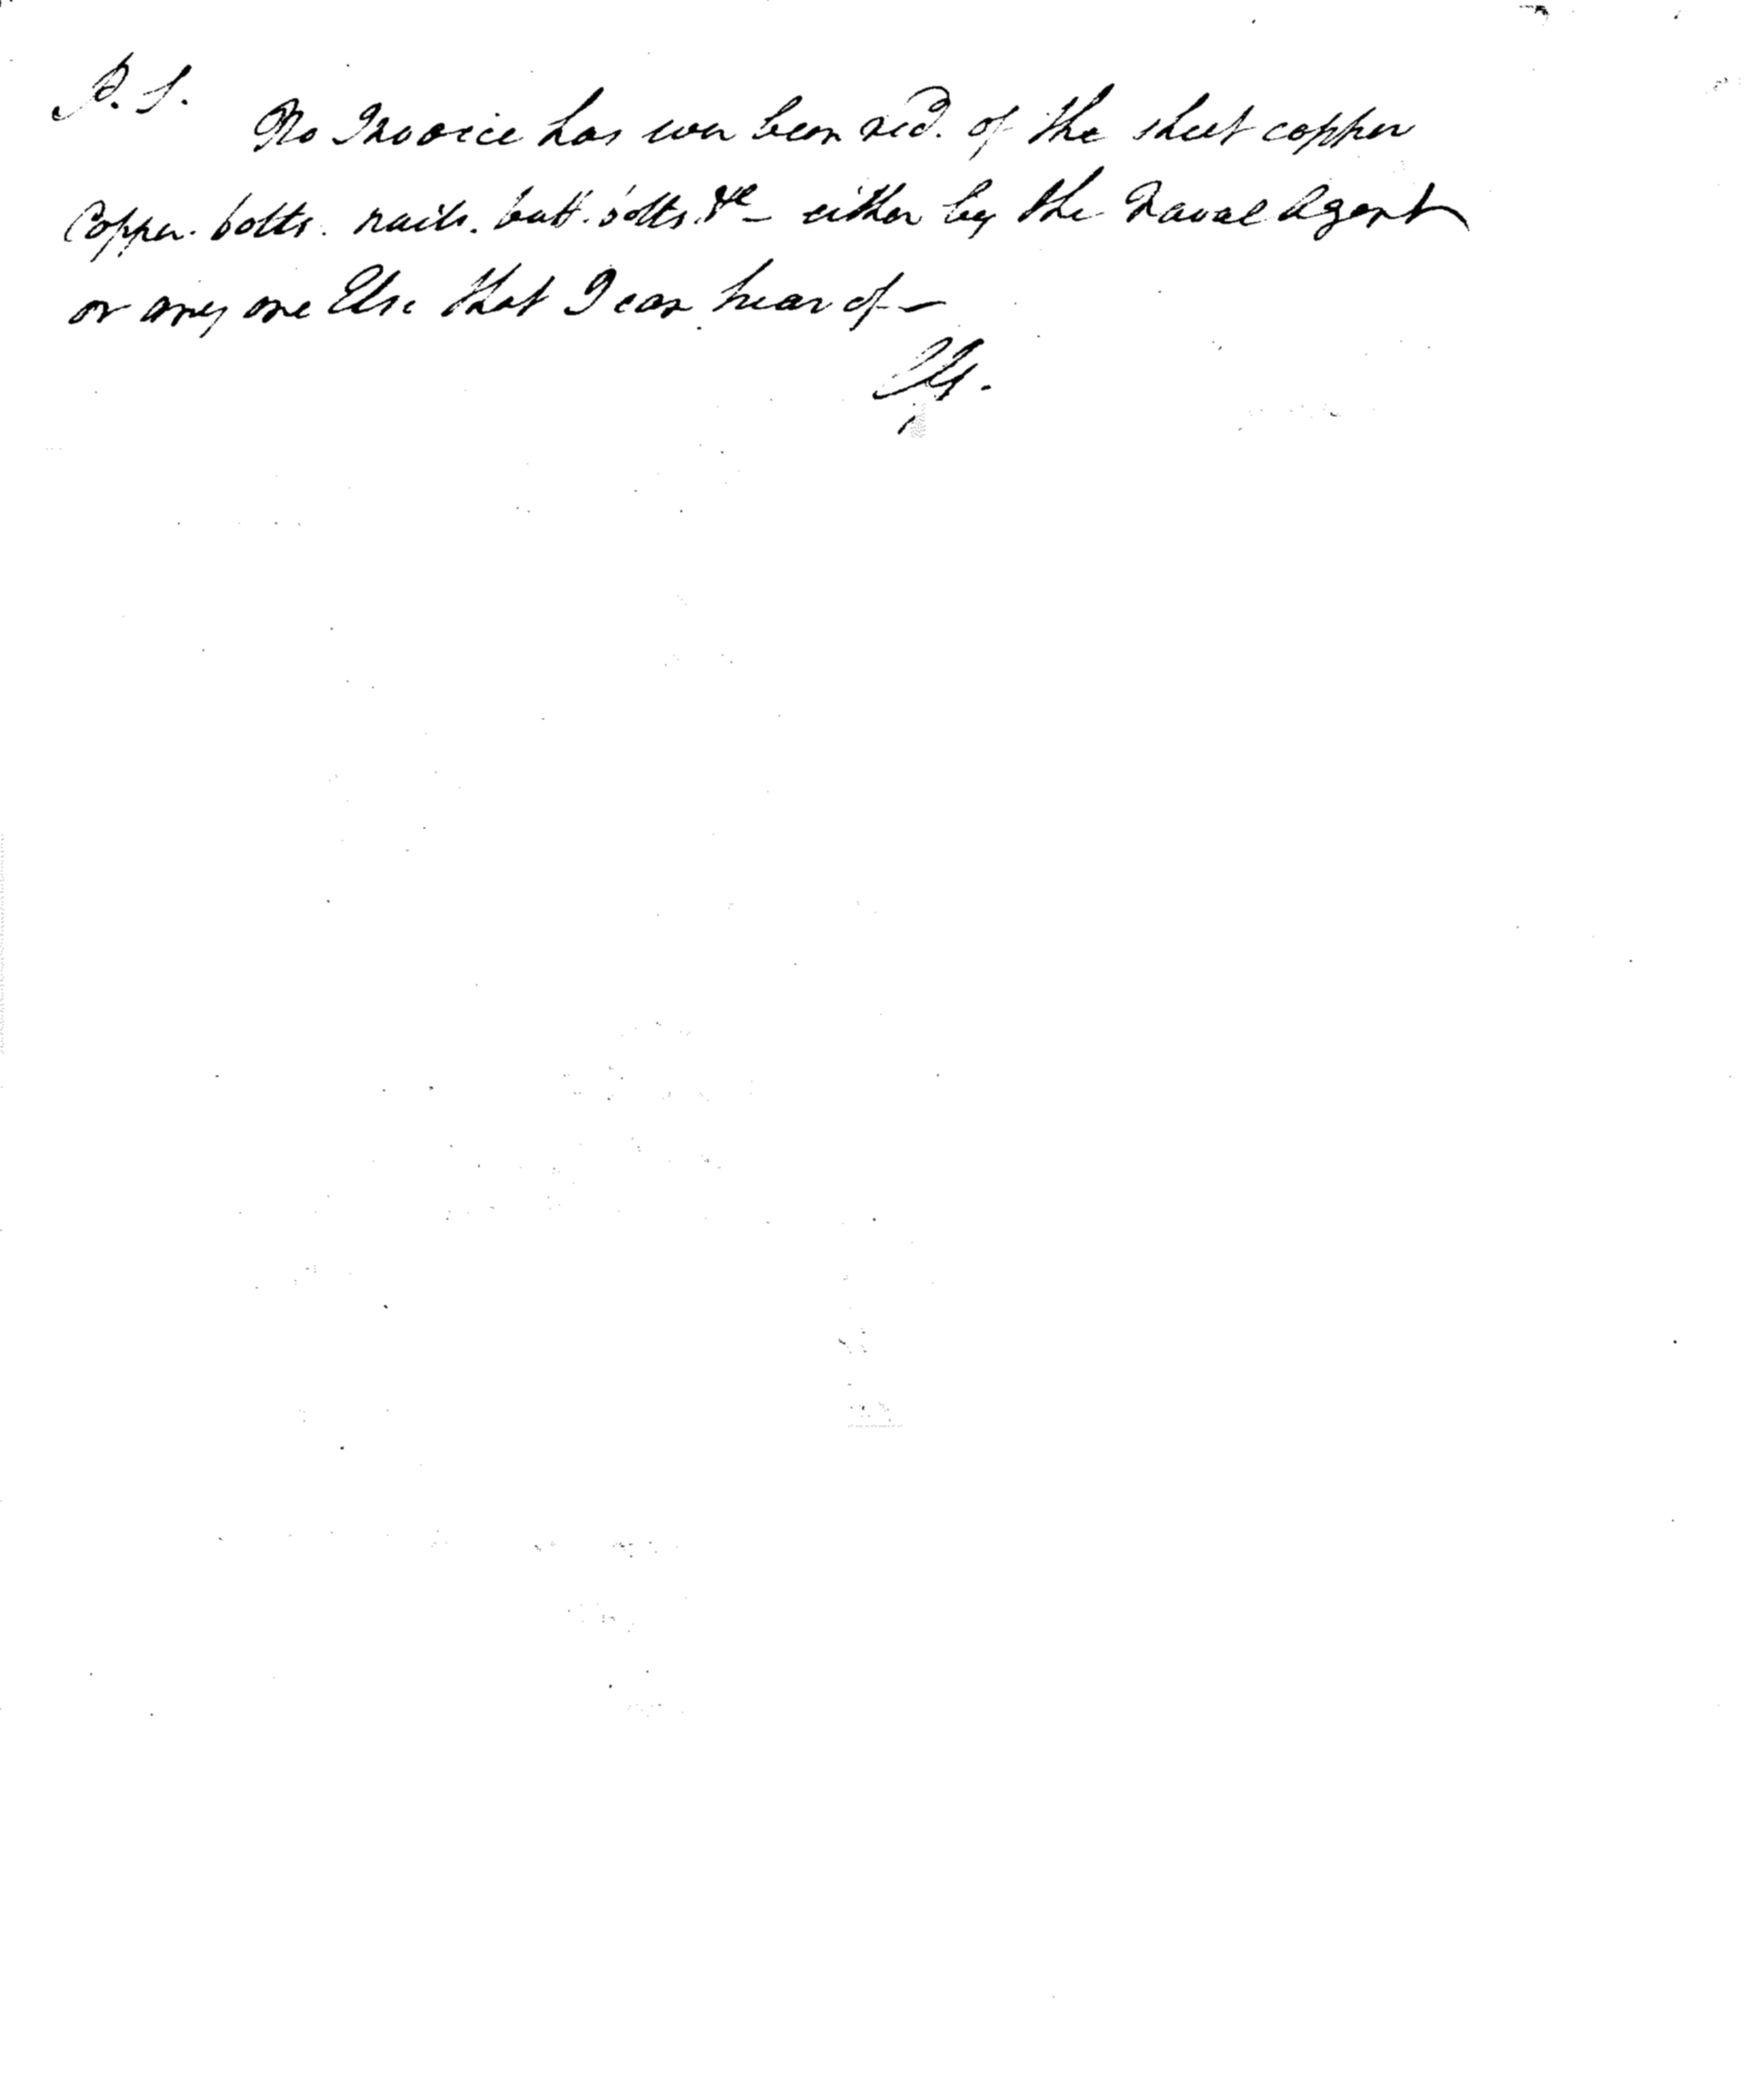 P. S.
No Invoice has ever been recd. of the sheet copper
Copper. bolts. nails. butt. bolts. &c - either by the Naval Agent
or any one Else that I can hear of -